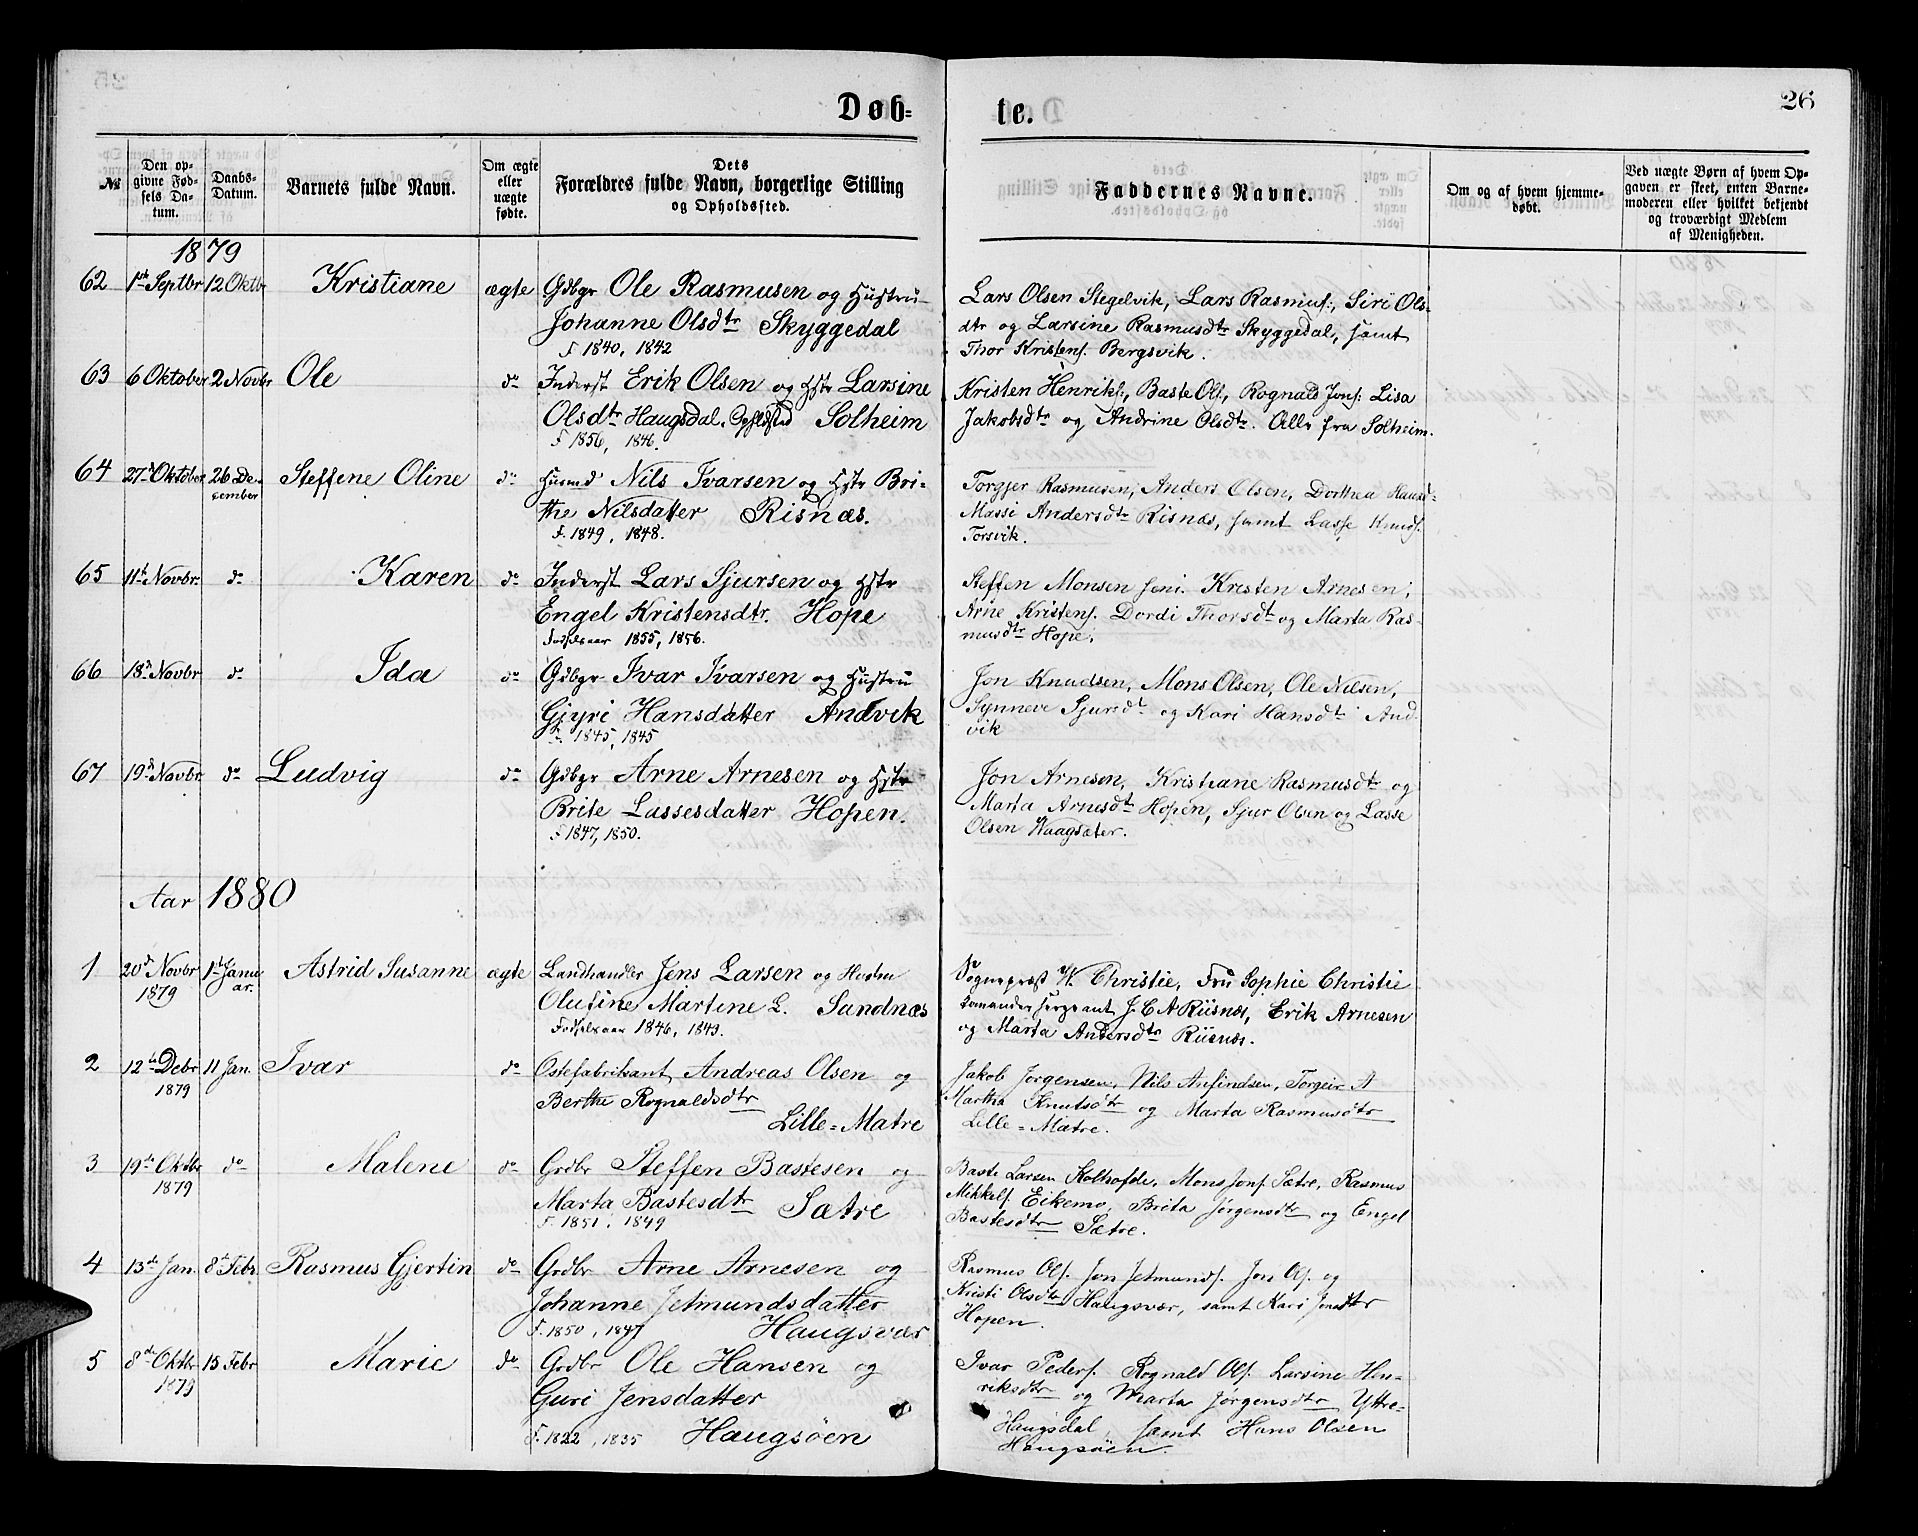 Døb=
te.
26
№
Den op-
givne Fød-
sels Da-
tum.
Daabs-
Datum.
Barnets fulde Navn.
Om ægte
eller
uægte
fødte.
Dets
Forældres fulde Navn, borgerlige Stilling
og Opholdssted.
Faddernes Navne.
Om og af hvem hjemme-
døbt.
Ved uægte Børn af hvem Op-
gaven er skeet, enten Barne-
moderen eller hvilket bekjendt
og troværdigt Medlem
af Menigheden.
1879
62 1ste Septbr 12 Oktbr Kristiane ægte Gdbgr Ole Rasmusen og Hustru
Johanne Olsdtr Skyggedal
F 1840, 1842
Lars Olsen Stegelvik, Lars Rasmus:, Siri Ols-
dtr og Larsine Rasmusdtr Skyggedal, samt
Thor Kristens. Bergsvik.
63 6 Oktober 2 Novbr Ole do Inderst Erik Olsen og Hstr Larsine
Olsdtr Haugsdal, Opholdsted Solheim
F 1856, 1846.
Kristen Henriks:, Baste Ols, Rognald Jons: Lisa
Jakobsdtr og Andrine Olsdtr. Alle fra Solheim.
64 27de Oktober 26 De-
cember Steffene Oline do Husmd Nils Ivarsen og Hstr Bri-
the Nilsdatter Risnæs.
F. 1849, 1848.
Torgjer Rasmusen, Anders Olsen, Dorthea Hansd
Massi Andersdtr Risnæs, samt Lasse Knuds.
Torsvik.
65 11te Novbr. do Karen do Inderst Lars Sjursen og Hstr
Engel Kristensdtr. Hope
Fødselsaar 1855, 1856.
Steffen Monsen seni. Kresten Arnesen;
Arne Kristens. Dordi Thorsdt og Marta Ras-
musdtr Hope.
66 18de Novbr do Ida do Gdbgr Ivar Ivarsen og Hustru
Gjyri Hansdatter Andvik
F. 1845, 1845
Jon Knudsen, Mons Olsen, Ole Nilsen,
Synneve Sjursdt og Kari Hansdt And-
vik
67 19de Novbr. do Ludvig do Gdbgr Arne Arnesen og Hstr
Brite Lassesdatter Hopen.
F 1847, 1850.
Jon Arnesen, Kristiane Rasmusdtr og
Marta Arnesdtr Hopen, Sjur Olsen og Lasse
Olsen Waagsæter.
Aar 1880
1 20de Novbr
1879 1ste Janu-
ar. Astrid Susanne ægte Landhandler Jens Larsen og Hustru
Olufine Martine L. Sandnæs
Fødselsaar 1846, 1843.
Sognepræst W. Christie, Fru Sophie Christie
Komandersergeant J. C A Riisnæs, Erik Arnesen
og Marta Andersdtr Riisnæs.
2 12te Debr
1879 11 Jan. Ivar do Ostefabrikant Andreas Olsen og
Berthe Rognaldsdtr
Lille=Matre
Jakob Jørgensen, Nils Anfindsen, Torgeir A
Martha Knutsdtr og Marta Rasmusdtr
Lille=Matre.
3 19de Oktbr
1879 do Malene do Grdbr Steffen Bastesen og
Marta Bastesdtr Sætre
F. 1851, 1849
Baste Larsen Kolhofde, Mons Jons Sætre, Rasmus
Mikkels. Eikemo, Brita Jørgensdtr og Engel
Bastesdtr Sætre.
4 13de Jan. 8de Febr. Rasmus Gjertin do Grdbr Arne Arnesen og
Johanne Jetmundsdatter
F. 1850, 1847 Haugsvær
Rasmus Ols. Jon Jetmunds. Jon Ols. og
Kristi Olsdtr Haugsvær, samt Kari Jonsdtr
Hopen.
5 8de Oktbr
1879 15 Febr Marie do Grdbr Ole Hansen og
Guri Jensdatter
F. 1822, 1835 Haugsøen
Ivar Peders. Rognald Ols. Larsine Hen-
riksdtr og Marta Jørgensdtr Yttre-
Haugsdal, samt Hans Olsen
Haugsøen.